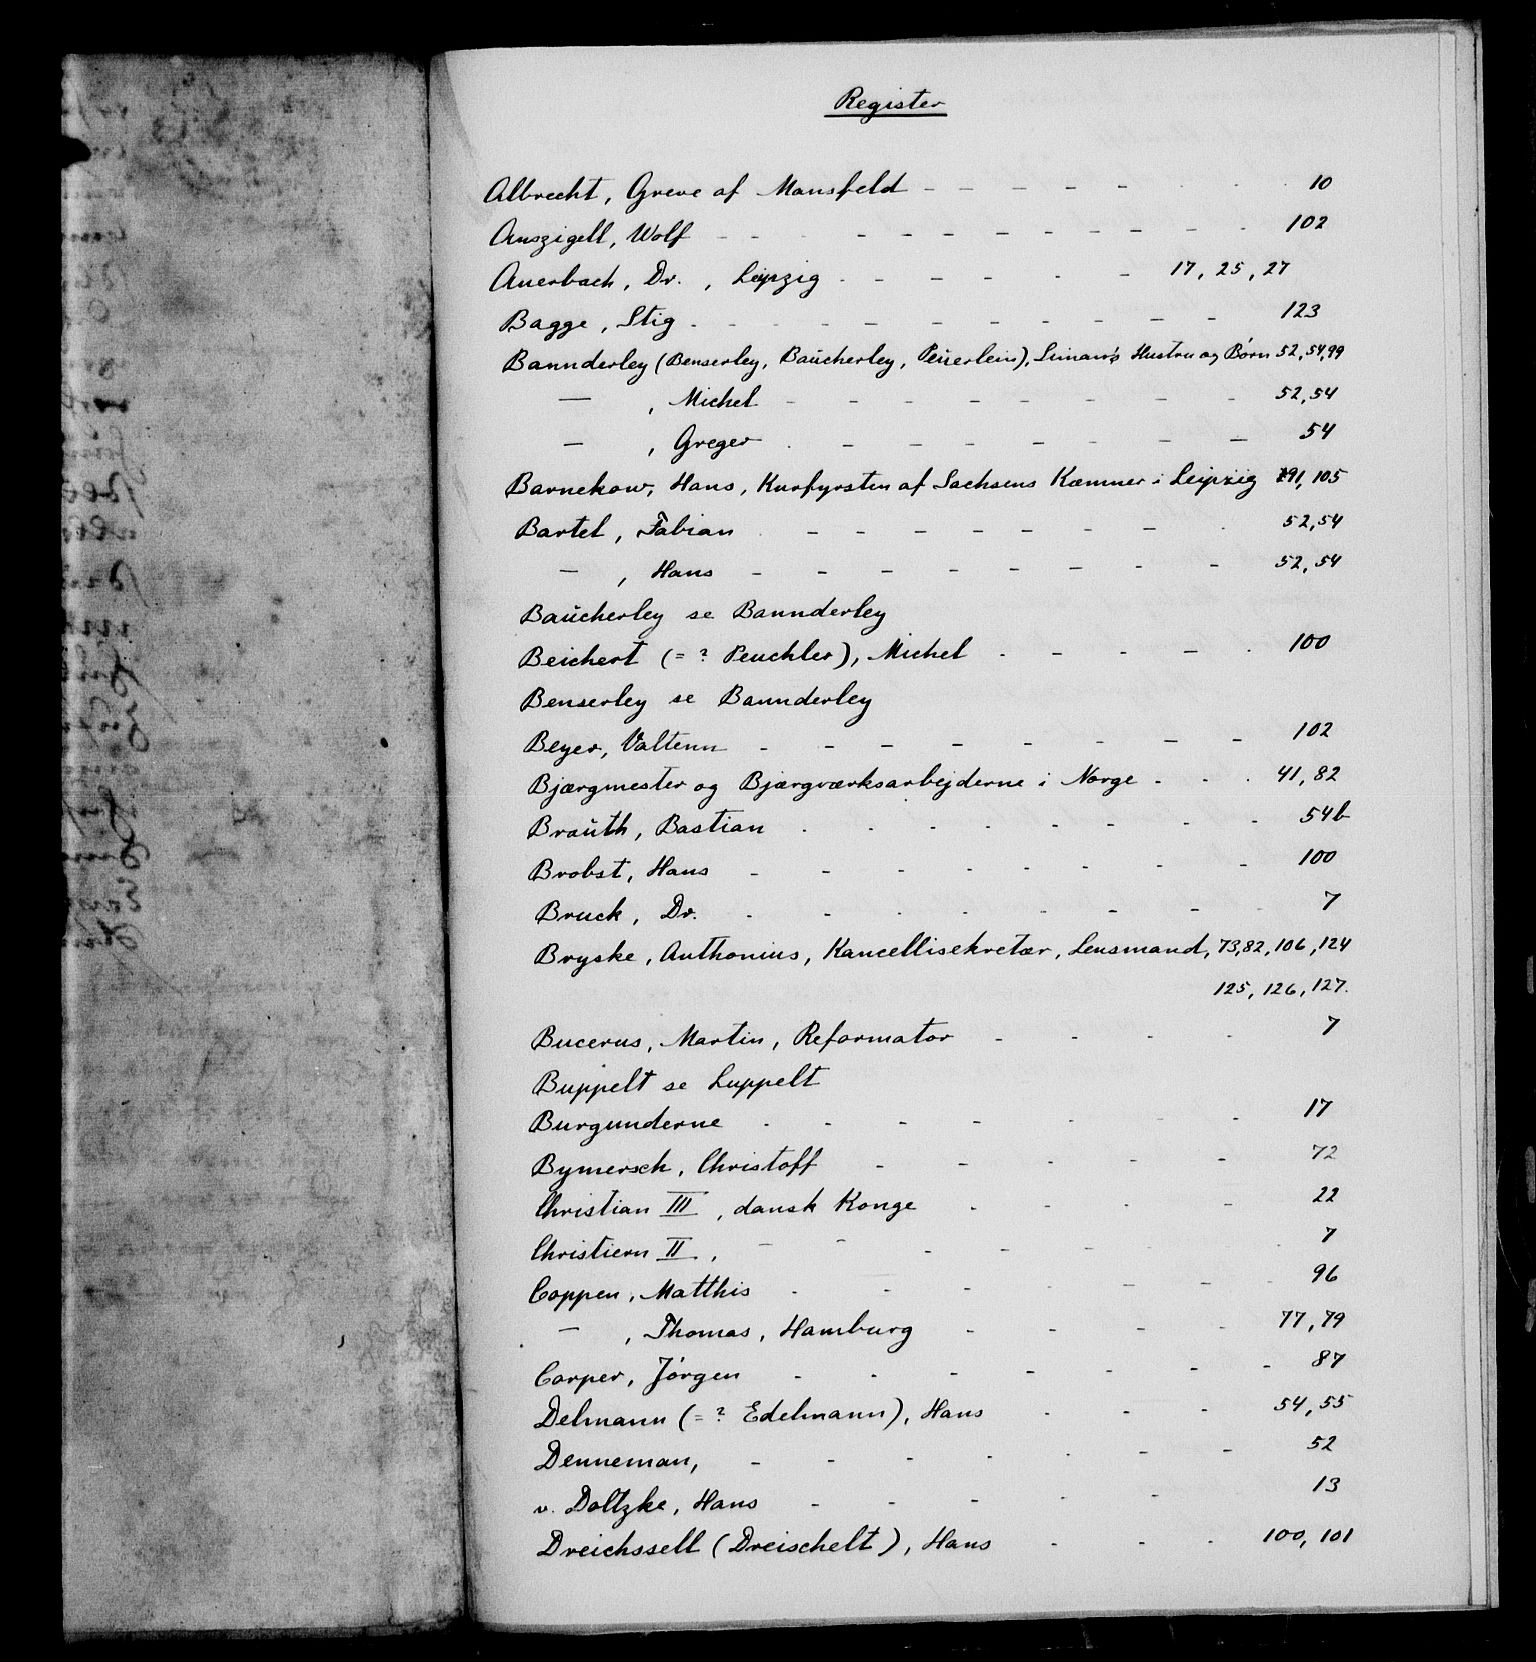 Register
Albrecht, Greve af Mansfeld - - - - - 10
Anszigell, Wolf - - - - - - - - - 102
Auerbach, Dr., Leipzig - - - - - 17, 25, 27
Bagge, Stig - - - - - - - - - 123
Bannderley (Benserley, Baŭcherley, Peŭerlein), Simon's Hustru og Børn 52, 54, 99
— , Michel - - - - - - - - 52, 54
— , Greger - - - - - - - - 54
Barnekow, Hans, Kurfyrsten af Sachsens Kæmner i Leipzig 91, 105
Bartel, Fabian - - - - - - - 52, 54
— , Hans - - - - - - - - 52, 54
Baŭcherley se Bannderley
Beichert (= ? Peuchler), Michel - - - - - 100
Benserley se Bannderley
Beyer, Valtenn - - - - - - - - 102
Bjærgmester og Bjærgværksarbejderne i Norge - - - 41, 82
Braŭth, Bastian - - - - - - - 54b
Brobst, Hans - - - - - - - 100
Bruck, Dr. - - - - - - - - 7
Bryske, Anthonius, Kancellisekretær, Lensmand, 73, 82, 106, 124
125, 126, 127.
Bucerus, Martin, Reformator - - - - 7
Buppelt se Luppelt
Burgunderne - - - - - - - 17
Bymersch, Christoff - - - - - 72
Christian III, dansk Konge - - - - 22
Christiern II, — - - - - - - 7
Coppen, Matthis - - - - - - 96
— , Thomas, Hamburg - - - - 77, 79
Corper, Jørgen - - - - - - - 87
Delmann (= ? Edelmann), Hans - - - 54, 55
Denneman, - - - - - - - 52
v. Doltzke, Hans - - - - - 13
Dreichssell (Dreischelt), Hans - - - 100, 101